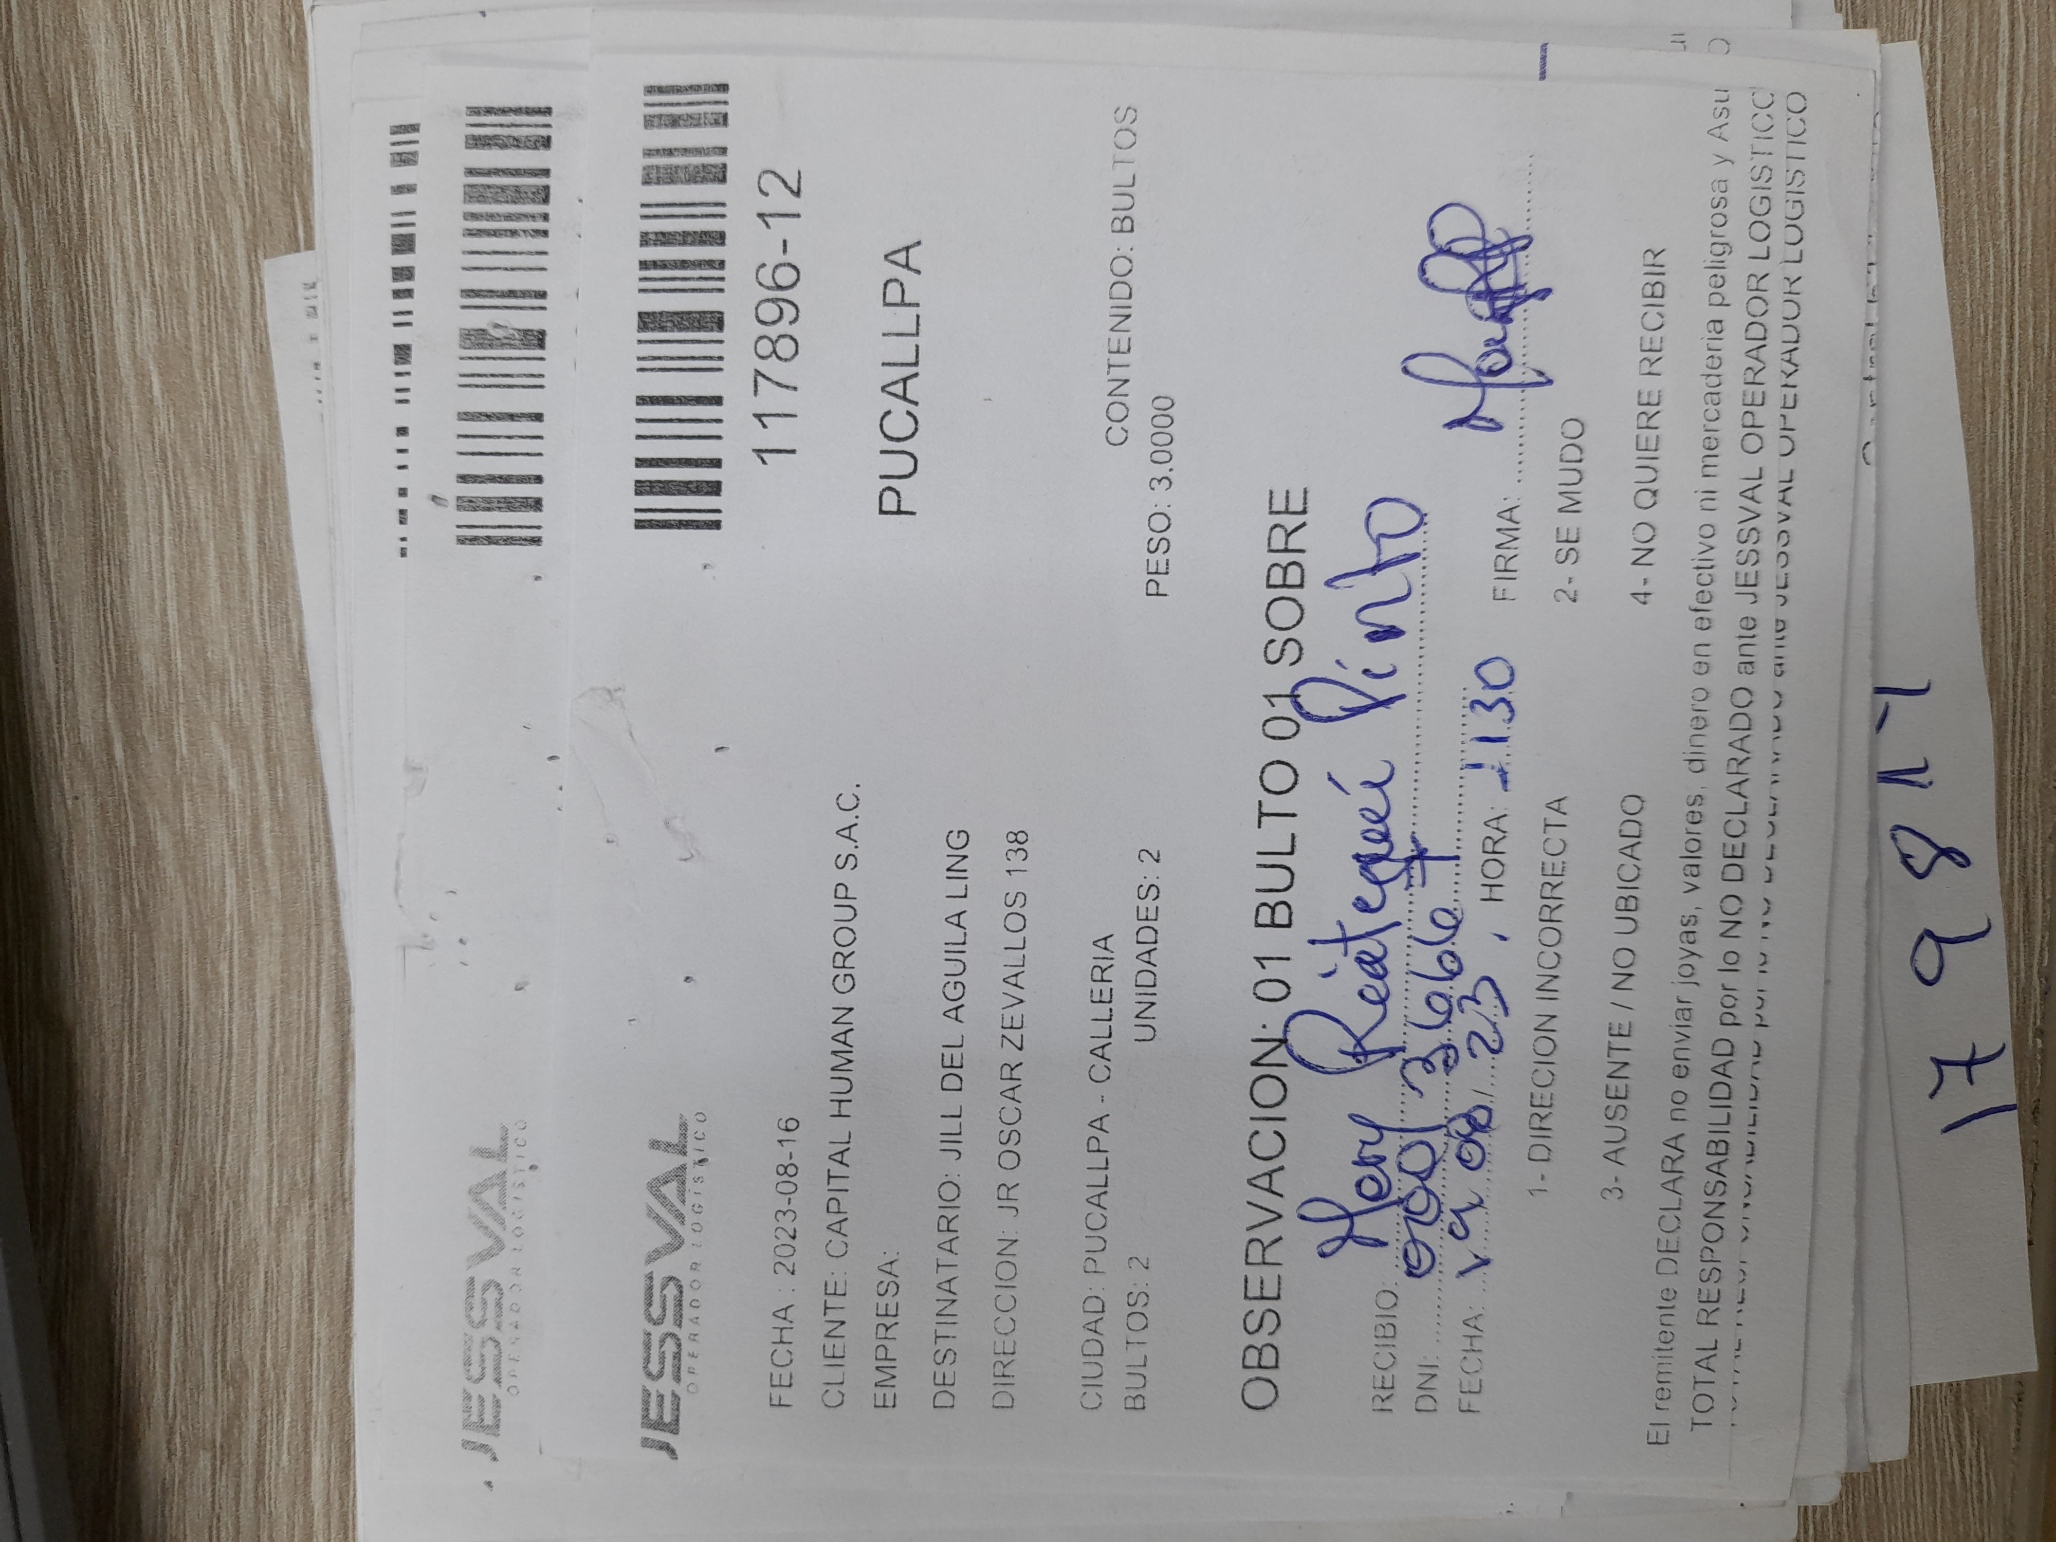 JESSVAL
OPERADOR LOGISTICO
JESSVAL
OPERADOR LOGÍSTICO
117896-12
FECHA : 2023-08-16
CLIENTE: CAPITAL HUMAN GROUP S.A.C.
EMPRESA:
PUCALLPA
DESTINATARIO: JILL DEL AGUILA LING
DIRECCION: JR OSCAR ZEVALLOS 138
CIUDAD: PUCALLPA - CALLERIA
CONTENIDO: BULTOS
BULTOS: 2 UNIDADES: 2 PESO: 3.0000
OBSERVACION: 01 BULTO 01 SOBRE
RECIBIO: Mery Reátegui Pinto
DNI: 000136667
FECHA: 19/08/23. HORA: 1130 FIRMA:
1- DIRECION INCORRECTA 2- SE MUDO
3- AUSENTE / NO UBICADO 4- NO QUIERE RECIBIR
El remitente DECLARA no enviar joyas, valores, dinero en efectivo ni mercaderia peligrosa y Asu
TOTAL RESPONSABILIDAD por lo NO DECLARADO ante JESSVAL OPERADOR LOGISTICO
TOTAL RESPONSABILIDAD por lo NO DECLARADO ante JESSVAL OPERADOR LOGISTICO